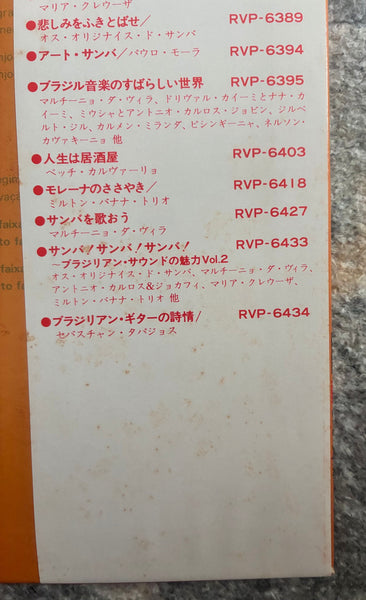 マリア・クレウーザ
●悲しみをふきとばせ／ RVP-6389
オス・オリジナイス・ド・サンバ
●アート・サンバ／パウロ・モーラ RVP-6394
●ブラジル音楽のすばらしい世界 RVP-6395
マルチーニョ・ダ・ヴィラ、ドリヴァル・カイーミとナナ・カ
イーミ、ミウシャとアントニオ・カルロス・ジョビン、ジルベ
ルト・ジル、カルメン・ミランダ、ピシンギーニャ、ネルソン・
カヴァキーニョ 他
●人生は居酒屋 RVP-6403
ベッチ・カルヴァーリョ
●モレーナのささやき／ RVP-6418
ミルトン・バナナ・トリオ
●サンバを歌おう RVP-6427
マルチーニョ・ダ・ヴィラ
●サンバ！サンバ！サンバ！ RVP-6433
〜ブラジリアン・サウンドの魅力Vol.2
オス・オリジナイス・ド・サンバ、マルチーニョ・ダ・ヴィラ、
アントニオ・カルロス&ジョカフィ、マリア・クレウーザ、
ミルトン・バナナ・トリオ 他
●ブラジリアン・ギターの詩情／ RVP-6434
セバスチャン・タパジョス
faixa
to fa
faixa
to fa